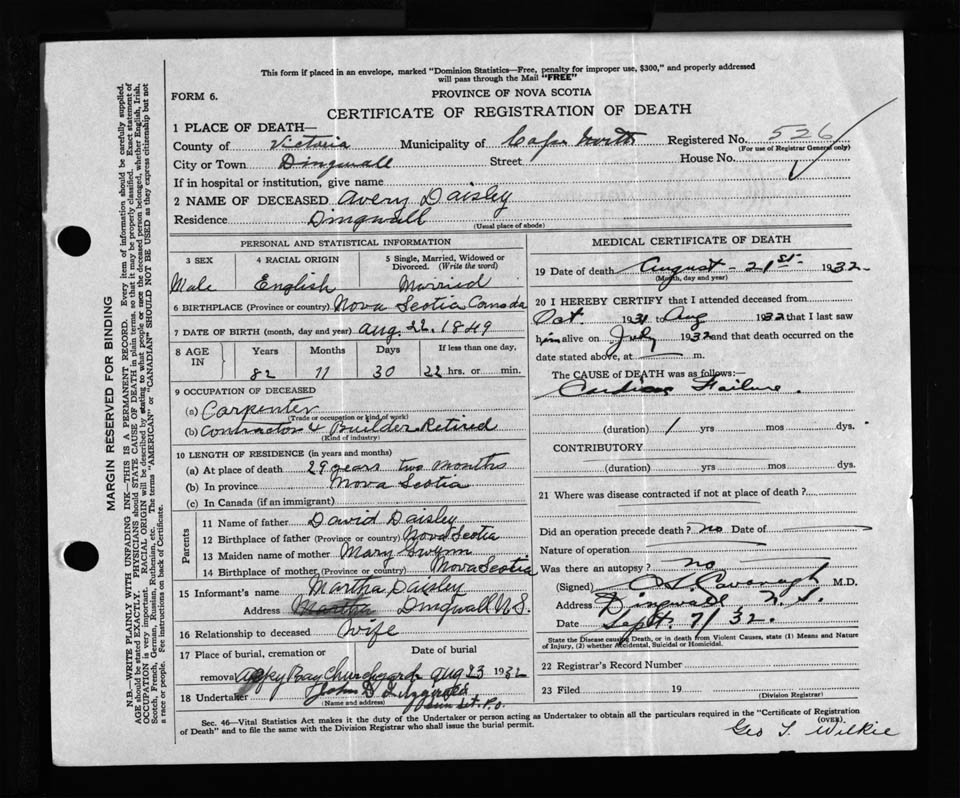 This form if placed in an envelope, marked "Dominion Statistics—Free, penalty for improper use, $300," and properly addressed
will pass through the Mail "FREE"
FORM 6.
PROVINCE OF NOVA SCOTIA
CERTIFICATE OF REGISTRATION OF DEATH
1 PLACE OF DEATH—
County of Victoria Municipality of Cape North Registered No. 526
(For use of Registrar General only)
City or Town Dingwall Street House No.
If in hospital or institution, give name
2 NAME OF DECEASED Avery Daisley
Residence Dingwall
(Usual place of abode)
PERSONAL AND STATISTICAL INFORMATION
3 SEX 4 RACIAL ORIGIN 5 Single, Married, Widowed or
Divorced. (Write the word)
Male English Married
6 BIRTHPLACE (Province or country) Nova Scotia Canada
7 DATE OF BIRTH (month, day and year) Aug. 22. 1849
8 AGE IN Years Months Days If less than one day,
82 11 30 22 hrs. or min.
9 OCCUPATION OF DECEASED
(a) Carpenter
(Trade or occupation or kind of work)
(b) Contractor & Builder Retired
(Kind of industry)
10 LENGTH OF RESIDENCE (in years and months)
(a) At place of death 29 years two months
(b) In province Nova Scotia
(c) In Canada (if an immigrant)
Parents
11 Name of father David Daisley
12 Birthplace of father (Province or country) Nova Scotia
13 Maiden name of mother Mary Gwynn
14 Birthplace of mother (Province or country) Nova Scotia
15 Informant's name Martha Daisley
Address Martha Dingwall N.S.
16 Relationship to deceased Wife
17 Place of burial, cremation or Date of burial
removal Bay Churchyard Aug 23 1932
18 Undertaker John
(Name and address)
Sunset P.O.
MEDICAL CERTIFICATE OF DEATH
19 Date of death August - 21st - 1932
(Month, day and year)
20 I HEREBY CERTIFY that I attended deceased from
Oct. 1931 to Aug 1932 that I last saw
him alive on July 1932 and that death occurred on the
date stated above, at m.
The CAUSE OF DEATH was as follows:—
Cardiac Failure.
(duration) 1 yrs mos dys.
CONTRIBUTORY
(duration) yrs mos dys.
21 Where was disease contracted if not at place of death?
Did an operation precede death? no Date of
Nature of operation
Was there an autopsy? no
(Signed) Cavanagh M.D.
Address Dingwall N.S.
Date Sept. 7/32.
State the Disease causing Death, or in death from Violent Causes, state (1) Means and Nature
of Injury, (2) whether Accidental, Suicidal or Homicidal.
22 Registrar's Record Number
23 Filed 19
(Division Registrar)
Sec. 46—Vital Statistics Act makes it the duty of the Undertaker or person acting as Undertaker to obtain all the particulars required in the "Certificate of Registration
of Death" and to file the same with the Division Registrar who shall issue the burial permit.
(OVER)
Geo T. Wilkie
MARGIN RESERVED FOR BINDING
N.B.—WRITE PLAINLY WITH UNFADING INK—THIS IS A PERMANENT RECORD. Every item of information should be carefully supplied.
AGE should be stated EXACTLY. PHYSICIANS should STATE CAUSE OF DEATH in plain terms, so that it may be properly classified. Exact statement of
OCCUPATION is very important. RACIAL ORIGIN will be described by stating to what people or race the deceased person belonged, whether English, Irish,
Scotch, French, German, Russian, Ruthenian, etc. The terms "AMERICAN" or "CANADIAN" SHOULD NOT BE USED as they express citizenship but not
a race or people. Fee instructions on back of Certificate.